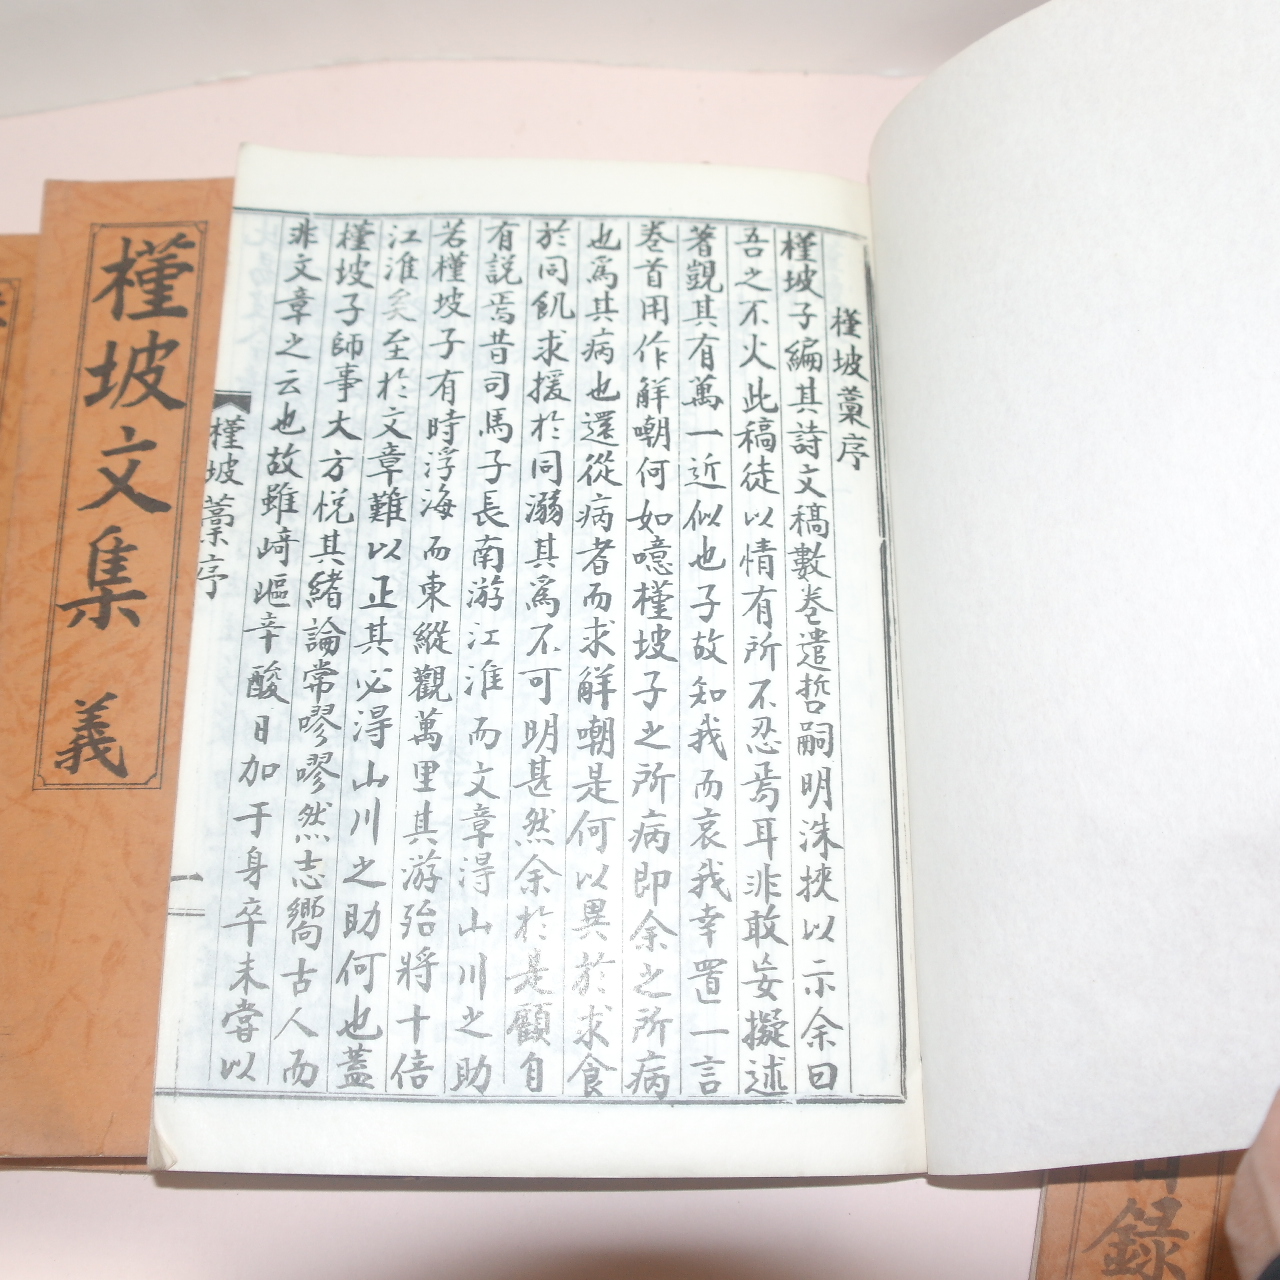 槿坡藁序
槿坡子編其詩文稿數卷遣哲嗣明洙挾以示余曰
吾之不火此稿徒以情有所不忍焉耳非敢妄擬述
著覬其有萬一近似也子故知我而哀我幸置一言
卷首用作解嘲何如噫槿坡子之所病即余之所病
也爲其病也還從病者而求解嘲是何以異於求食
於同飢求援於同溺其爲不可明甚然余於是顧自
有説焉昔司馬子長南游江淮而文章得山川之助
若槿坡子有時浮海而東縱觀萬里其游殆將十倍
江淮矣至於文章難以正其必得山川之助何也蓋
槿坡子師事大方悅其緒論常嘐嘐然志嚮古人而
非文章之云也故雖崎嶇辛酸日加于身卒未嘗以
槿坡藁序
一
槿坡文集 義
目錄